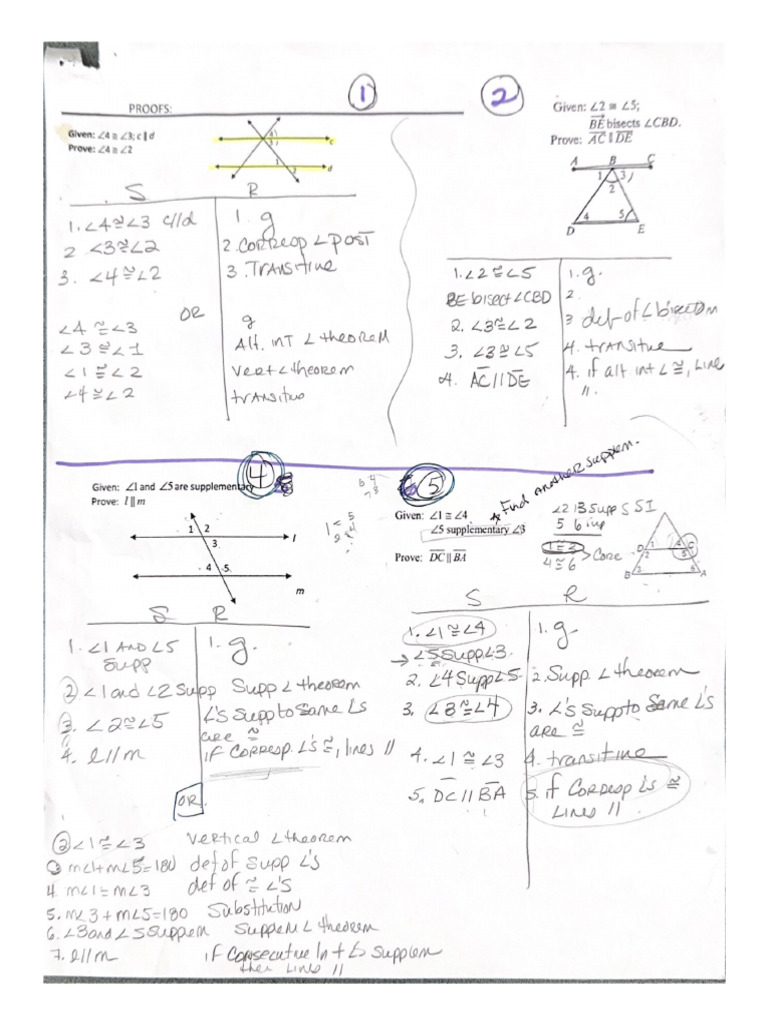 1
PROOFS:
Given: ∠4 ≅ ∠3; c∥d
Prove: ∠4 ≅ ∠2
4
3
c
1
2
d
S R
1. ∠4≅∠3 c//d 1. g
2 ∠3≅∠2 2. Corresp ∠ POST
3. ∠4≅∠2 3. Transitive
OR
∠4≅∠3 g
∠3≅∠1 Alt. inT ∠ theorem
∠1≅∠2 Vert ∠ theorem
∠4≅∠2 transitive
2
Given: ∠2 ≅ ∠5;
BE bisects ∠CBD.
Prove: AC ∥ DE
A B C
1 3
2
4 5
D E
1. ∠2≅∠5 1. g.
BE bisect ∠CBD 2.
2. ∠3≅∠2 3 def of ∠ bisector
3. ∠3≅∠5 4. transitive
4. AC//DE 4. if alt int ∠ ≅, Line
//.
4
Given: ∠1 and ∠5 are supplementary
Prove: l ∥ m
1 2
3
l
4 5
m
S R
1. ∠1 AND ∠5 1. g.
Supp
2 ∠1 and ∠2 Supp Supp ∠ theorem
3. ∠2≅∠5 ∠'s Supp to Same ∠s
are ≅
4. l//m if Corresp. ∠'s ≅, lines //
OR
2 ∠1≅∠3 Vertical ∠ theorem
m∠1+m∠5=180 def of Supp ∠'s
4. m∠1=m∠3 def of ≅ ∠'s
5. m∠3+m∠5=180 Substitution
6. ∠3 and ∠5 Supplem Supplem ∠ theorem
7. l//m if Consecutive Int ∠s Supplem
then Lines //
5
Find another supplem.
Given: ∠1 ≅ ∠4
∠5 supplementary ∠3
Prove: DC ∥ BA
∠2 13 Supp S SI
5 6 
1≅3
4≅6
D 1 4 C
2 5
B 3 6 A
S R
1. ∠1≅∠4 1. g.
∠5 Supp ∠3.
2. ∠4 Supp ∠5 2. Supp. ∠ theorem
3. ∠3≅∠4 3. ∠'s Supp to Same ∠'s
are ≅
4. ∠1≅∠3 4. transitive
5. DC // BA 5. if Corresp ∠'s ≅
Lines //